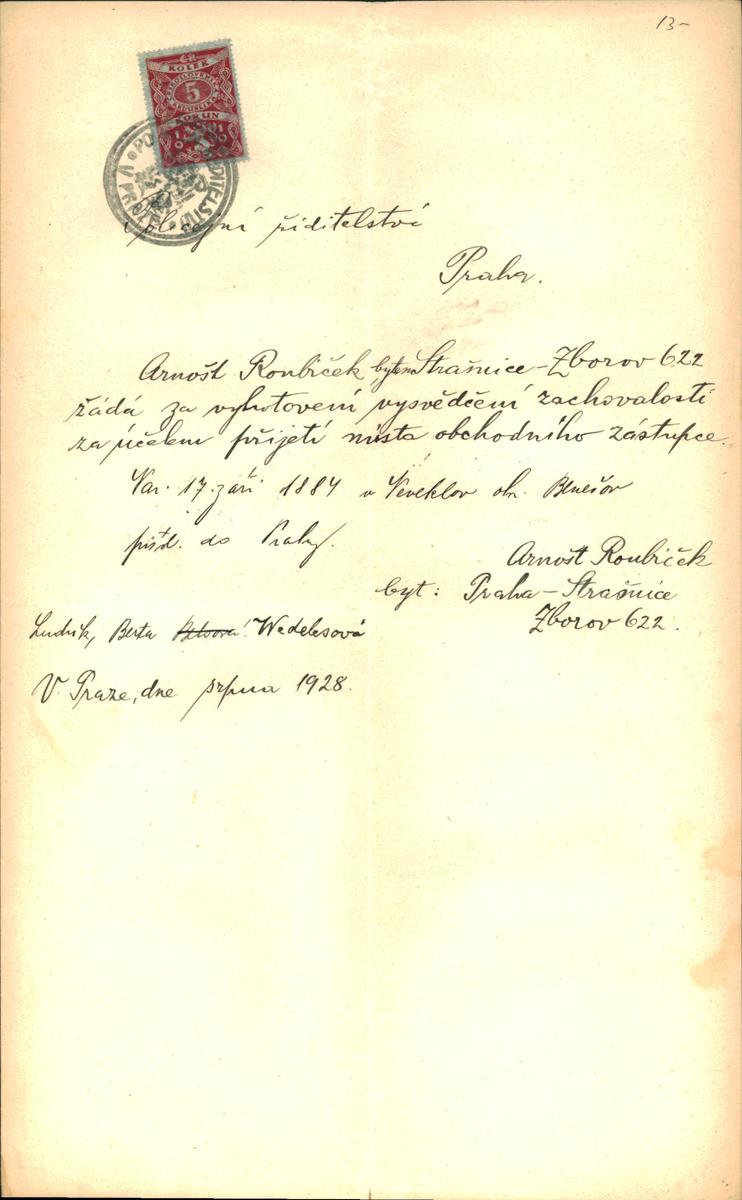 13-
KOLEK
5
KORUN
policejní ředitelství
Praha.
Arnošt Roubíček bytem Strašnice-Zborov 622
žádá za vyhotovení vysvědčení zachovalosti
za účelem přijetí místa obchodního zástupce.
Nar. 17. září 1884 v Neveklov okr. Benešov
přísl. do Prahy.
Arnošt Roubíček
byt: Praha-Strašnice
Zborov 622.
Ludvík, Berta Wedelesová
V Praze, dne srpna 1928.